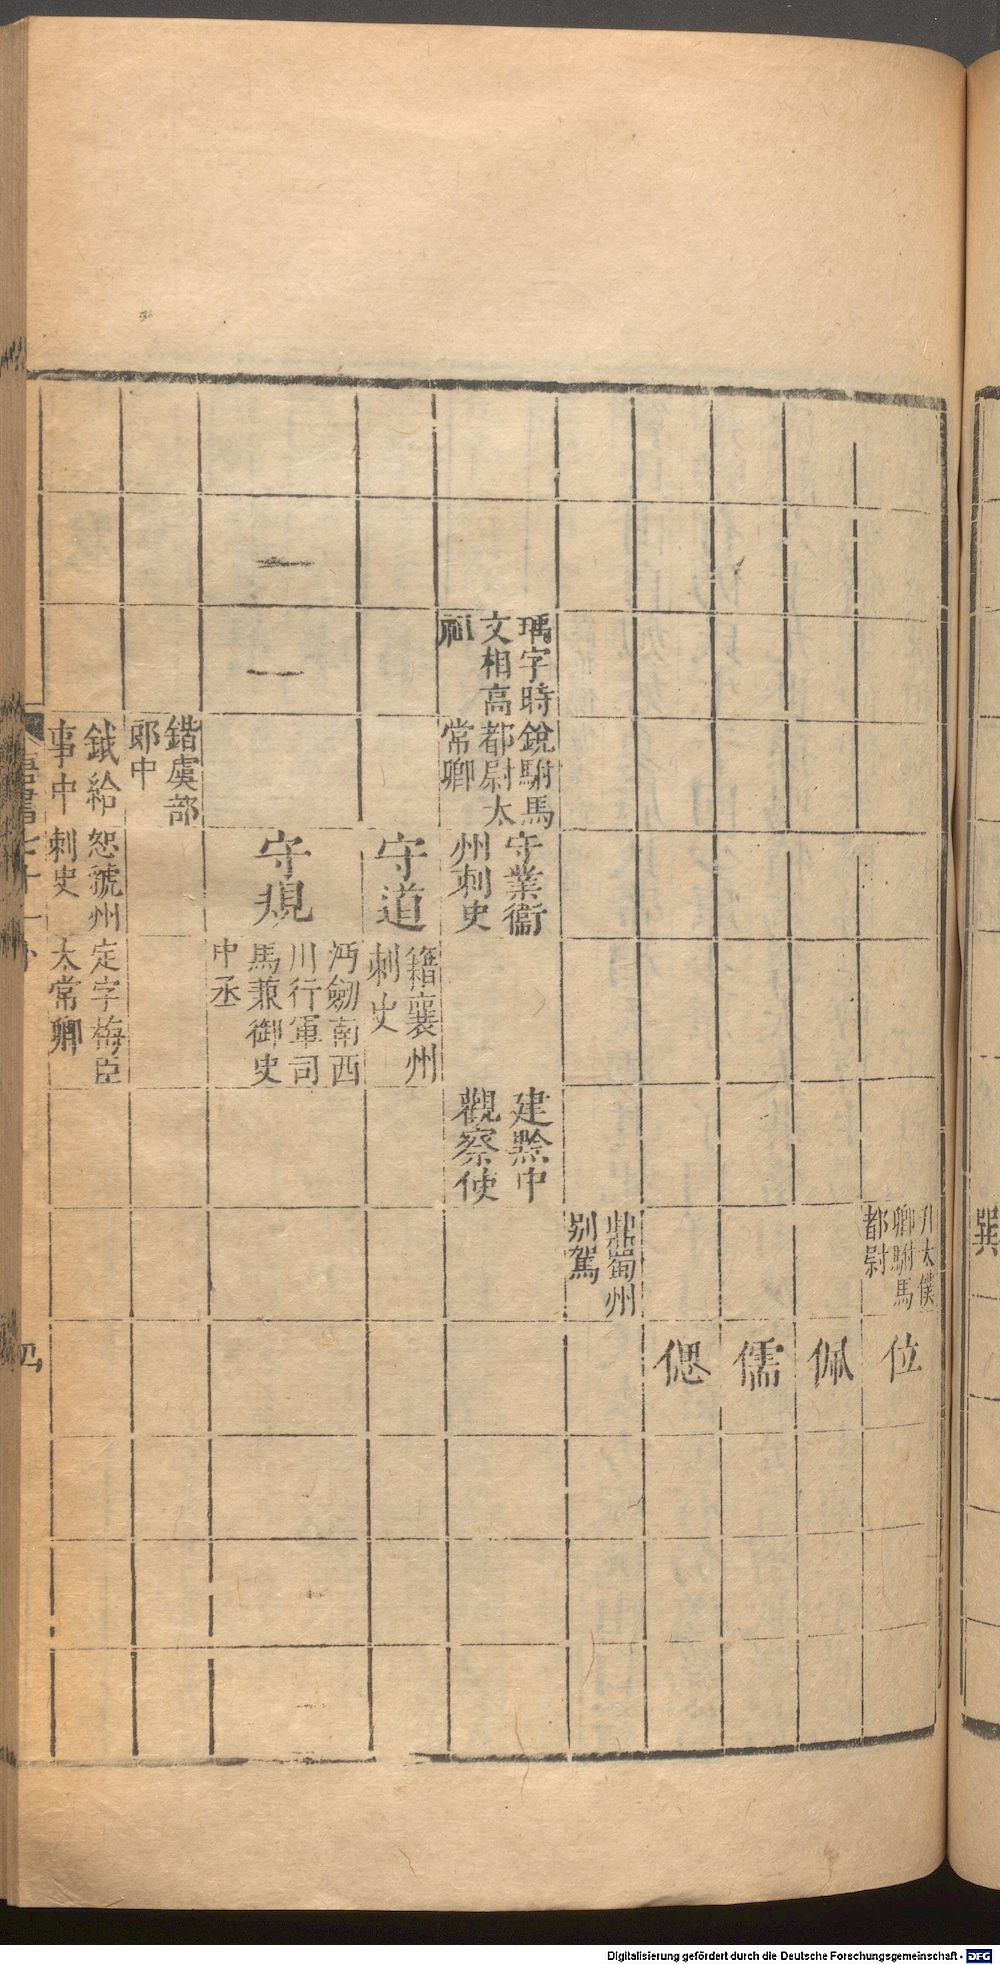 巽
升太僕
卿駙馬
都尉
位
佩
儒
偲
鼎蜀州
别駕
瑀字時
文相高
祖
銳駙馬
都尉太
常卿
守業衞
州刺史
建黔中
觀察使
守道
籍襄州
刺史
守規
沔劒南西
川行軍司
馬兼御史
中丞
鍇虞部
郎中
鉞給
事中
恕虢州
刺史
定字梅臣
太常卿
唐書七十一
四
Digitalisierung gefördert durch die Deutsche Forschungsgemeinschaft - DFG